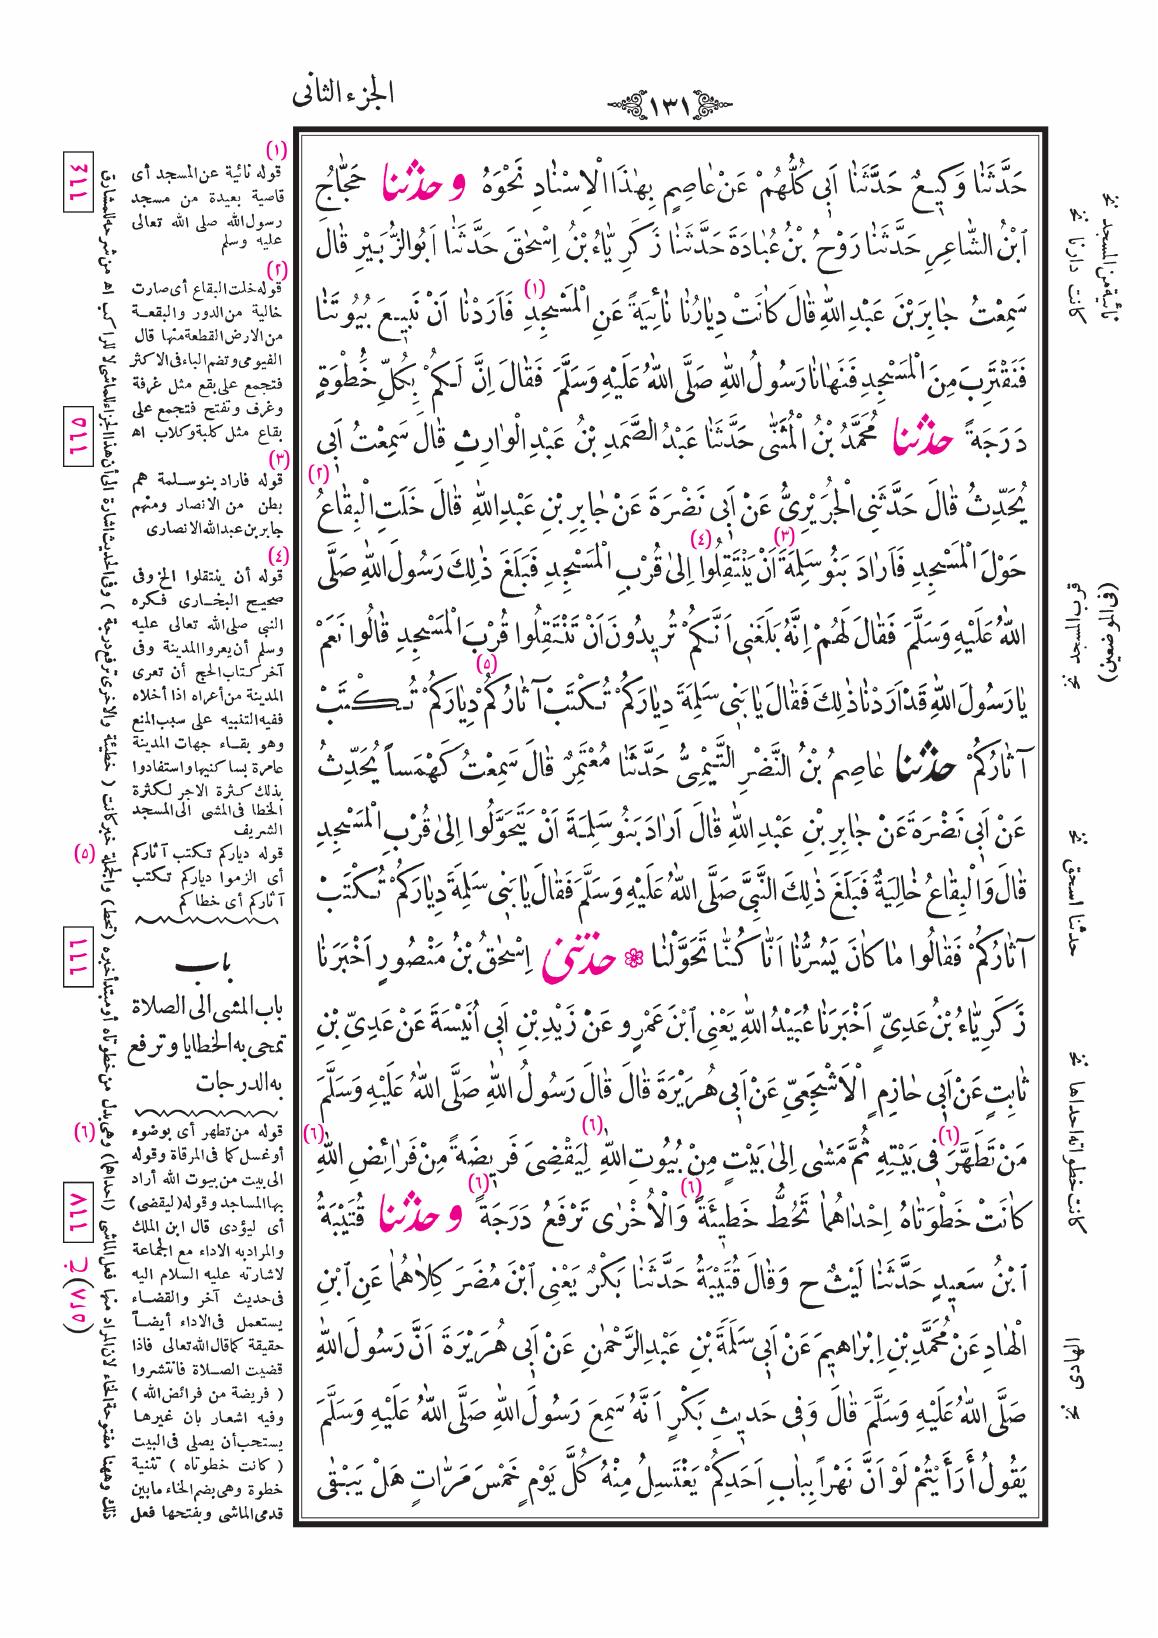 الجزء الثاني
١٣١
حَدَّثَنَا وَكِيعٌ حَدَّثَنَا أَبِي كُلُّهُمْ عَنْ عَاصِمٍ بِهٰذَا الْإِسْنَادِ نَحْوَهُ و حدثنا حَجَّاجُ
ابْنُ الشَّاعِرِ حَدَّثَنَا رَوْحُ بْنُ عُبَادَةَ حَدَّثَنَا زَكَرِيَّاءُ بْنُ إِسْحٰقَ حَدَّثَنَا أَبُو الزُّبَيْرِ قَالَ
سَمِعْتُ جَابِرَ بْنَ عَبْدِ اللّٰهِ قَالَ كَانَتْ دِيَارُنَا نَائِيَةً عَنِ الْمَسْجِدِ (١) فَأَرَدْنَا أَنْ نَبِيعَ بُيُوتَنَا
فَنَقْتَرِبَ مِنَ الْمَسْجِدِ فَنَهَانَا رَسُولُ اللّٰهِ صَلَّى اللّٰهُ عَلَيْهِ وَسَلَّمَ فَقَالَ إِنَّ لَكُمْ بِكُلِّ خُطْوَةٍ
دَرَجَةً حدثنا مُحَمَّدُ بْنُ الْمُثَنَّى حَدَّثَنَا عَبْدُ الصَّمَدِ بْنُ عَبْدِ الْوَارِثِ قَالَ سَمِعْتُ أَبِي
يُحَدِّثُ قَالَ حَدَّثَنِي الْجُرَيْرِيُّ عَنْ أَبِي نَضْرَةَ عَنْ جَابِرِ بْنِ عَبْدِ اللّٰهِ قَالَ خَلَتِ الْبِقَاعُ (٢)
حَوْلَ الْمَسْجِدِ فَأَرَادَ بَنُو سَلِمَةَ (٣) أَنْ يَنْتَقِلُوا (٤) إِلىٰ قُرْبِ الْمَسْجِدِ فَبَلَغَ ذٰلِكَ رَسُولَ اللّٰهِ صَلَّى
اللّٰهُ عَلَيْهِ وَسَلَّمَ فَقَالَ لَهُمْ إِنَّهُ بَلَغَنِي أَنَّكُمْ تُرِيدُونَ أَنْ تَنْتَقِلُوا قُرْبَ الْمَسْجِدِ قَالُوا نَعَمْ
يَا رَسُولَ اللّٰهِ قَدْ أَرَدْنَا ذٰلِكَ فَقَالَ يَا بَنِي سَلِمَةَ دِيَارَكُمْ تُكْتَبْ آثَارُكُمْ (٥) دِيَارَكُمْ تُكْتَبْ
آثَارُكُمْ حدثنا عَاصِمُ بْنُ النَّضْرِ التَّيْمِيُّ حَدَّثَنَا مُعْتَمِرٌ قَالَ سَمِعْتُ كَهْمَساً يُحَدِّثُ
عَنْ أَبِي نَضْرَةَ عَنْ جَابِرِ بْنِ عَبْدِ اللّٰهِ قَالَ أَرَادَ بَنُو سَلِمَةَ أَنْ يَتَحَوَّلُوا إِلىٰ قُرْبِ الْمَسْجِدِ
قَالَ وَالْبِقَاعُ خَالِيَةٌ فَبَلَغَ ذٰلِكَ النَّبِيَّ صَلَّى اللّٰهُ عَلَيْهِ وَسَلَّمَ فَقَالَ يَا بَنِي سَلِمَةَ دِيَارَكُمْ تُكْتَبْ
آثَارُكُمْ فَقَالُوا مَا كَانَ يَسُرُّنَا أَنَّا كُنَّا تَحَوَّلْنَا حدثني إِسْحٰقُ بْنُ مَنْصُورٍ أَخْبَرَنَا
زَكَرِيَّاءُ بْنُ عَدِيٍّ أَخْبَرَنَا عُبَيْدُ اللّٰهِ يَعْنِي ابْنَ عَمْرٍو عَنْ زَيْدِ بْنِ أَبِي أُنَيْسَةَ عَنْ عَدِيِّ بْنِ
ثَابِتٍ عَنْ أَبِي حَازِمٍ الْأَشْجَعِيِّ عَنْ أَبِي هُرَيْرَةَ قَالَ قَالَ رَسُولُ اللّٰهِ صَلَّى اللّٰهُ عَلَيْهِ وَسَلَّمَ
مَنْ تَطَهَّرَ (٦) فِي بَيْتِهِ ثُمَّ مَشىٰ إِلىٰ بَيْتٍ مِنْ بُيُوتِ اللّٰهِ (٦) لِيَقْضِيَ فَرِيضَةً مِنْ فَرَائِضِ اللّٰهِ (٦)
كَانَتْ خَطْوَتَاهُ إِحْدَاهُمَا تَحُطُّ خَطِيئَةً (٦) وَالْأُخْرٰى تَرْفَعُ دَرَجَةً (٦) و حدثنا قُتَيْبَةُ
ابْنُ سَعِيدٍ حَدَّثَنَا لَيْثٌ ح وَقَالَ قُتَيْبَةُ حَدَّثَنَا بَكْرٌ يَعْنِي ابْنَ مُضَرَ كِلَاهُمَا عَنِ ابْنِ
الْهَادِ عَنْ مُحَمَّدِ بْنِ إِبْرَاهِيمَ عَنْ أَبِي سَلَمَةَ بْنِ عَبْدِ الرَّحْمٰنِ عَنْ أَبِي هُرَيْرَةَ أَنَّ رَسُولَ اللّٰهِ
صَلَّى اللّٰهُ عَلَيْهِ وَسَلَّمَ قَالَ وَفِي حَدِيثِ بَكْرٍ أَنَّهُ سَمِعَ رَسُولَ اللّٰهِ صَلَّى اللّٰهُ عَلَيْهِ وَسَلَّمَ
يَقُولُ أَرَأَيْتُمْ لَوْ أَنَّ نَهْراً بِبَابِ أَحَدِكُمْ يَغْتَسِلُ مِنْهُ كُلَّ يَوْمٍ خَمْسَ مَرَّاتٍ هَلْ يَبْقٰى
نائية من المسجد نخ
كانت دارنا نخ
(في الموضعين)
قرب المسجد نخ
حدثنا اسحق نخ
كانت خطواته احداها نخ
(١)
قوله نائية عن المسجد أى
قاصية بعيدة من مسجد
رسول الله صلى الله تعالى
عليه وسلم
(٢)
قوله خلت البقاع أى صارت
خالية من الدور والبقعة
من الارض القطعة منها قال
الفيومى وتضم الباء فى الاكثر
فتجمع على بقع مثل غرفة
وغرف وتفتح فتجمع على
بقاع مثل كلبة وكلاب اه
(٣)
قوله فاراد بنو سلمة هم
بطن من الانصار ومنهم
جابر بن عبدالله الانصارى
(٤)
قوله أن ينتقلوا الخ وفى
صحيح البخارى فكره
النبي صلى الله تعالى عليه
وسلم أن يعروا المدينة وفى
آخر كتاب الحج أن تعرى
المدينة من أعراه اذا أخلاه
ففيه التنبيه على سبب المنع
وهو بقاء جهات المدينة
عامرة بساكنيها واستفادوا
بذلك كثرة الاجر لكثرة
الخطا فى المشى الى المسجد
الشريف
(٥) قوله دياركم تكتب آثاركم
أى الزموا دياركم تكتب
آثاركم أى خطاكم
باب
باب المشى الى الصلاة
تمحى به الخطايا وترفع
به الدرجات
(٦) قوله من تطهر أى بوضوء
أو غسل كما فى المرقاة وقوله
الى بيت من بيوت الله أراد
بها المساجد وقوله (ليقضى)
أى ليؤدى قال ابن الملك
والمراد به الاداء مع الجماعة
لاشارته عليه السلام اليه
فى حديث آخر والقضاء
يستعمل فى الاداء أيضاً
حقيقة كما قال الله تعالى فاذا
قضيت الصلاة فانتشروا
( فريضة من فرائض الله )
وفيه اشعار بان غيرها
يستحب أن يصلى فى البيت
( كانت خطوتاه ) تثنية
خطوة وهى بضم الخاء ما بين
قدمى الماشى وبفتحها فعل
الماشى (احداها) وهى بدل من خطوتاه أو مبتدأ خبره (تحط) والجملة خبر كانت ( خطيئة والاخرى ترفع درجة ) وفى الحديث اشارة الى أن هذا الجزاء للماشى لا للراكب اه من شرحه للمشارق
ذلك وههنا مفتوحة الخاء لان المراد منها فعل
٦٦٤
٦٦٥
٦٦٦
٦٦٧